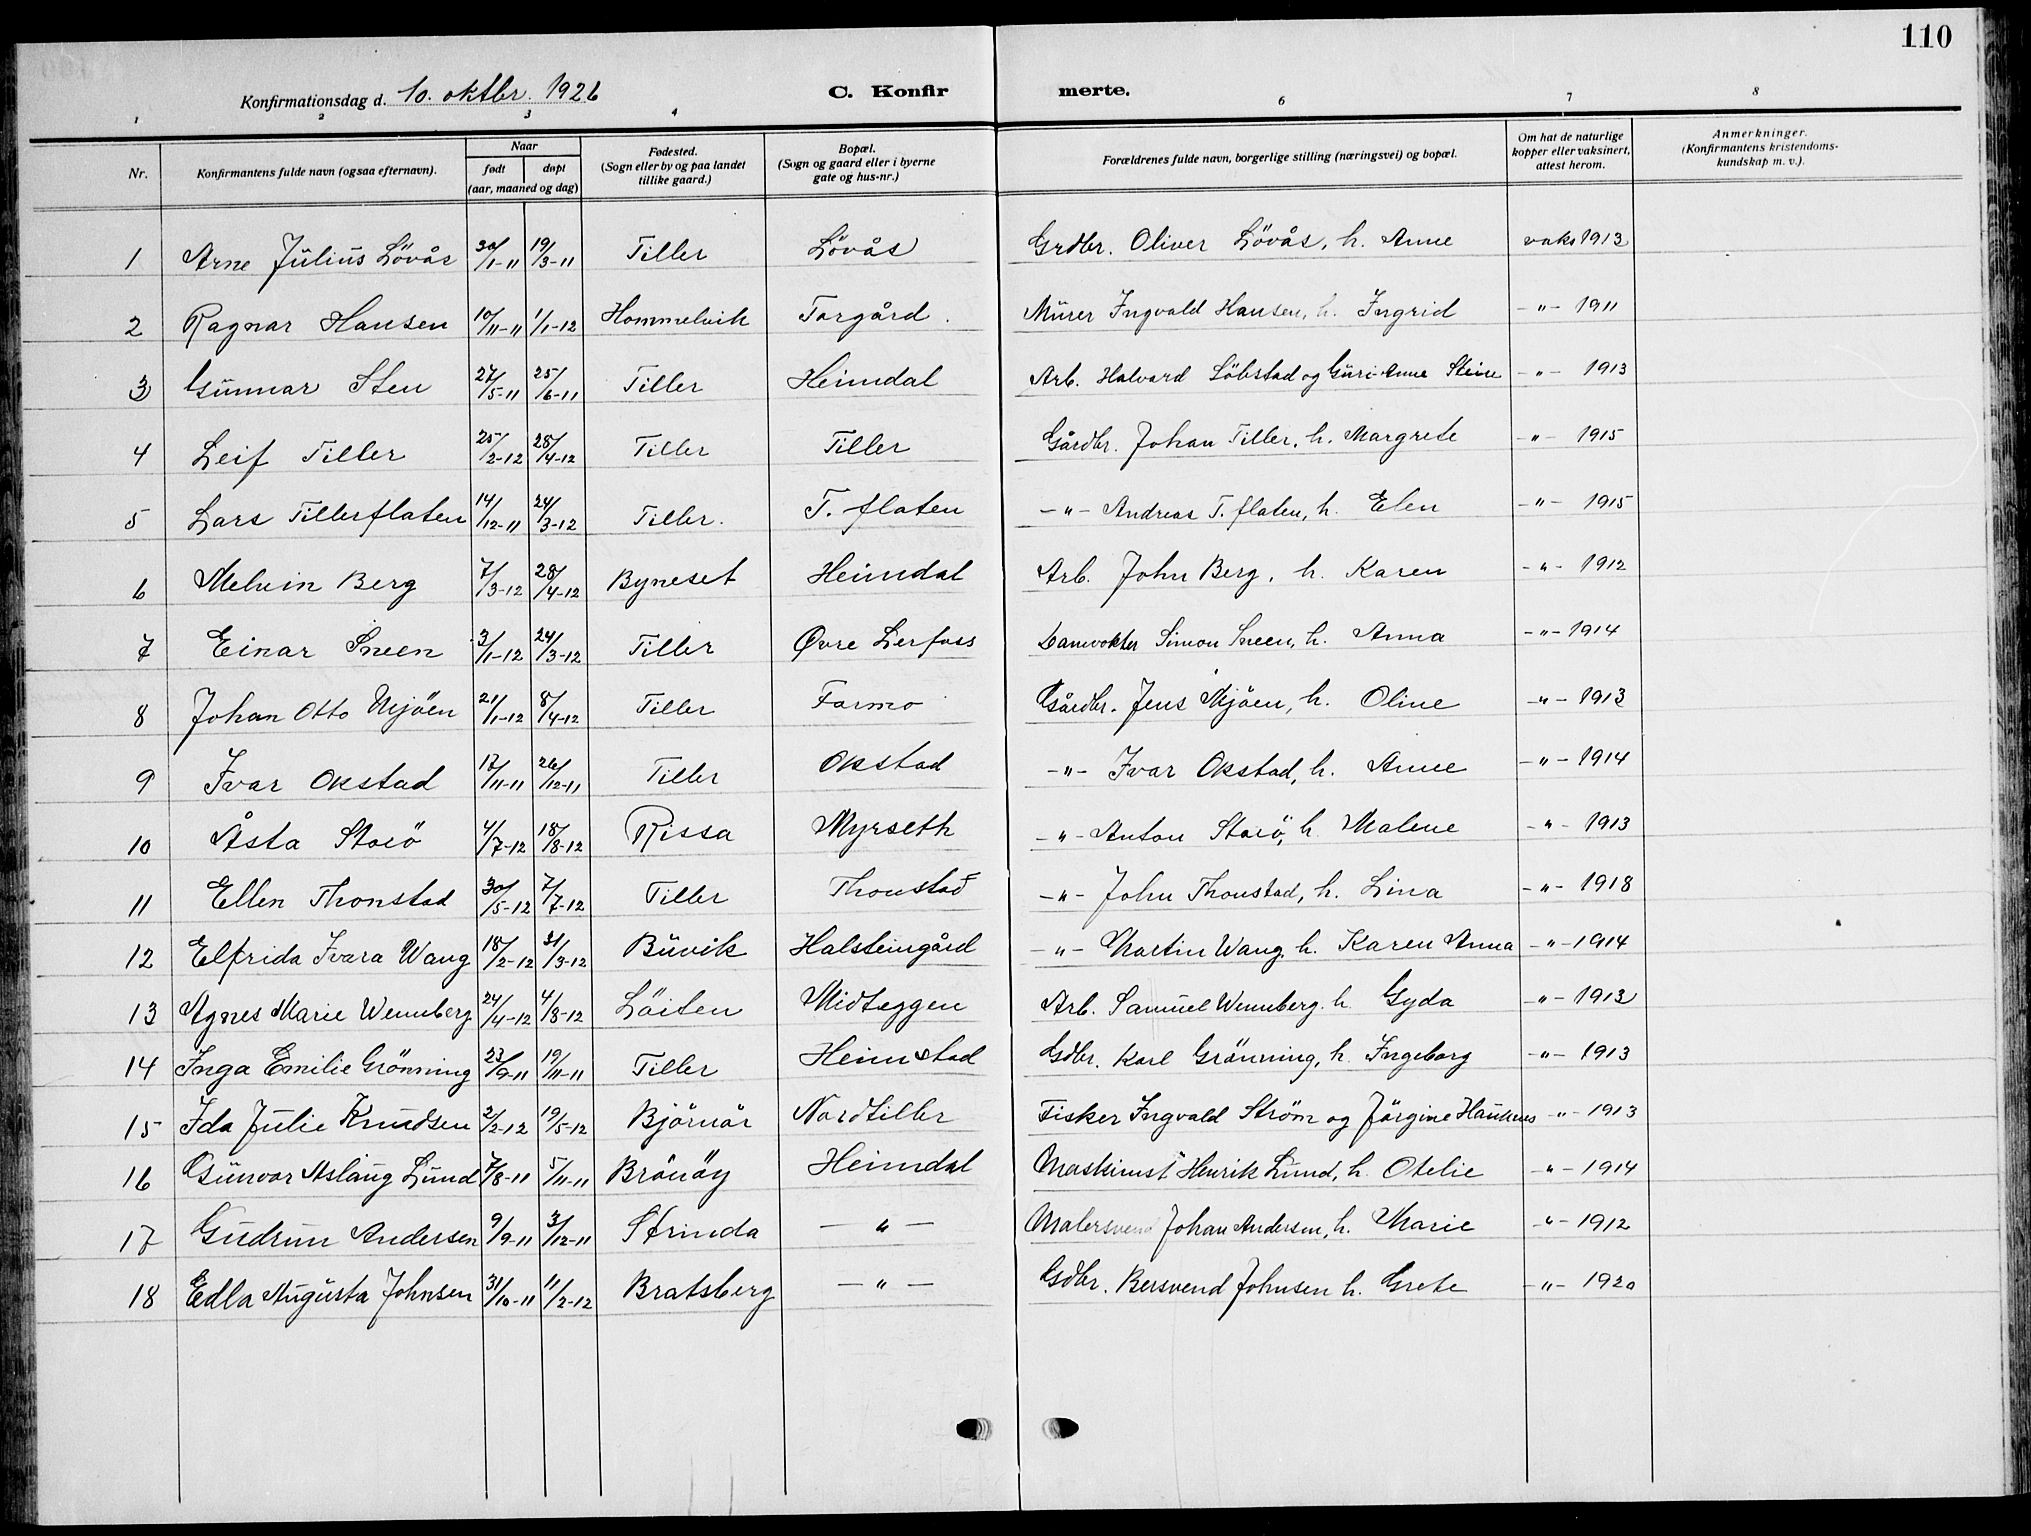 110
Konfirmationsdag d. 10. oktbr. 1926 C. Konfir merte.
1 2 3 4 6 7 8
Nr. Konfirmantens fulde navn (ogsaa efternavn). Naar født døpt (aar, maaned og dag) Fødested. (Sogn eller by og paa landet tillike gaard.) Bopæl. (Sogn og gaard eller i byerne gate og hus-nr.) Forældrenes fulde navn, borgerlige stilling (næringsvei) og bopæl. Om hat de naturlige kopper eller vaksinert, attest herom. Anmerkninger. (Konfirmantens kristendoms-kundskap m. v.).
1 Arne Julius Lövås 30/1-11 19/3-11 Tiller Lövås Grdbr. Oliver Lövås, h. Anne vaks 1913
2 Ragnar Hansen 10/11-11 1/1-12 Hommelvik Torgård. Murer Ingvald Hansen, h. Ingrid -"- 1911
3 Gunnar Sten 27/5-11 25/6-11 Tiller Heimdal Arb. Halvard Löbstad og Guri Anne Steine -"- 1913
4 Leif Tiller 25/2-12 28/4-12 Tiller Tiller Gårdbr. Johan Tiller, h. Margrete -"- 1915
5 Lars Tillerflaten 14/12-11 24/3-12 Tiller. T. flaten -"- Andreas T. flaten, h. Elen -"- 1915
6 Melvin Berg 7/3-12 28/4-12 Byneset Heimdal Arb. John Berg, h. Karen -"- 1912
7 Einar Sneen 3/1-12 24/3-12 Tiller Øvre Lerfoss Damvokter Simon Sneen, h. Anna -"- 1914
8 Johan Otto Mjöen 21/1-12 8/4-12 Tiller Formo Gårdbr. Jens Mjöen, h. Oline -"- 1913
9 Ivar Okstad 17/11-11 26/12-11 Tiller Okstad -"- Ivar Okstad, h. Anne -"- 1914
10 Åsta Storö 4/7-12 18/8-12 Rissa Myrseth -"- Anton Storö, h. Malene -"- 1913
11 Ellen Thonstad 30/5-12 7/7-12 Tiller Thonstad -"- John Thonstad, h. Lina -"- 1918
12 Elfrida Ivara Wang 18/2-12 31/3-12 Buvik Halsteingård -"- Martin Wang, h. Karen Anna -"- 1914
13 Agnes Marie Wennberg 24/4-12 4/8-12 Löiten Midteggen Arb. Samuel Wennberg. h Gyda -"- 1913
14 Inga Emilie Grönning 23/9-11 19/11-11 Tiller Heimstad Gdbr. Karl Grönning, h. Ingeborg -"- 1913
15 Ida Julie Knudsen 2/2-12 19/5-12 Björnör Nordtiller Fisker Ingvald Strøm og Jörgine Haukenes -"- 1913
16 Gunvor Aslaug Lund 7/8-11 5/11-11 Brönöy Heimdal Maskinist Henrik Lund, h. Otelie -"- 1914
17 Gudrun Andersen 9/9-11 3/12-11 Strinda -"- Malersvend Johan Andersen, h. Marie -"- 1912
18 Edla Augusta Johnsen 31/10-11 11/2-12 Bratsberg -"- Gdbr. Bersvend Johnsen h. Grete -"- 1920